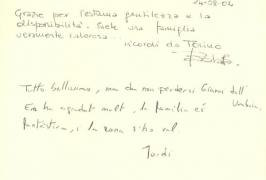 24-08-04
Grazie per l'estrema gentilezza e la
disponibilità. Siete una famiglia
veramente calorosa...
ricordi da Torino
Tutto bellissimo, ma da non perdersi Gianni dell'
Umbria.
Ens ha agradat molt, la família és
fantàstica, i la zona s'ho val.
Jordi